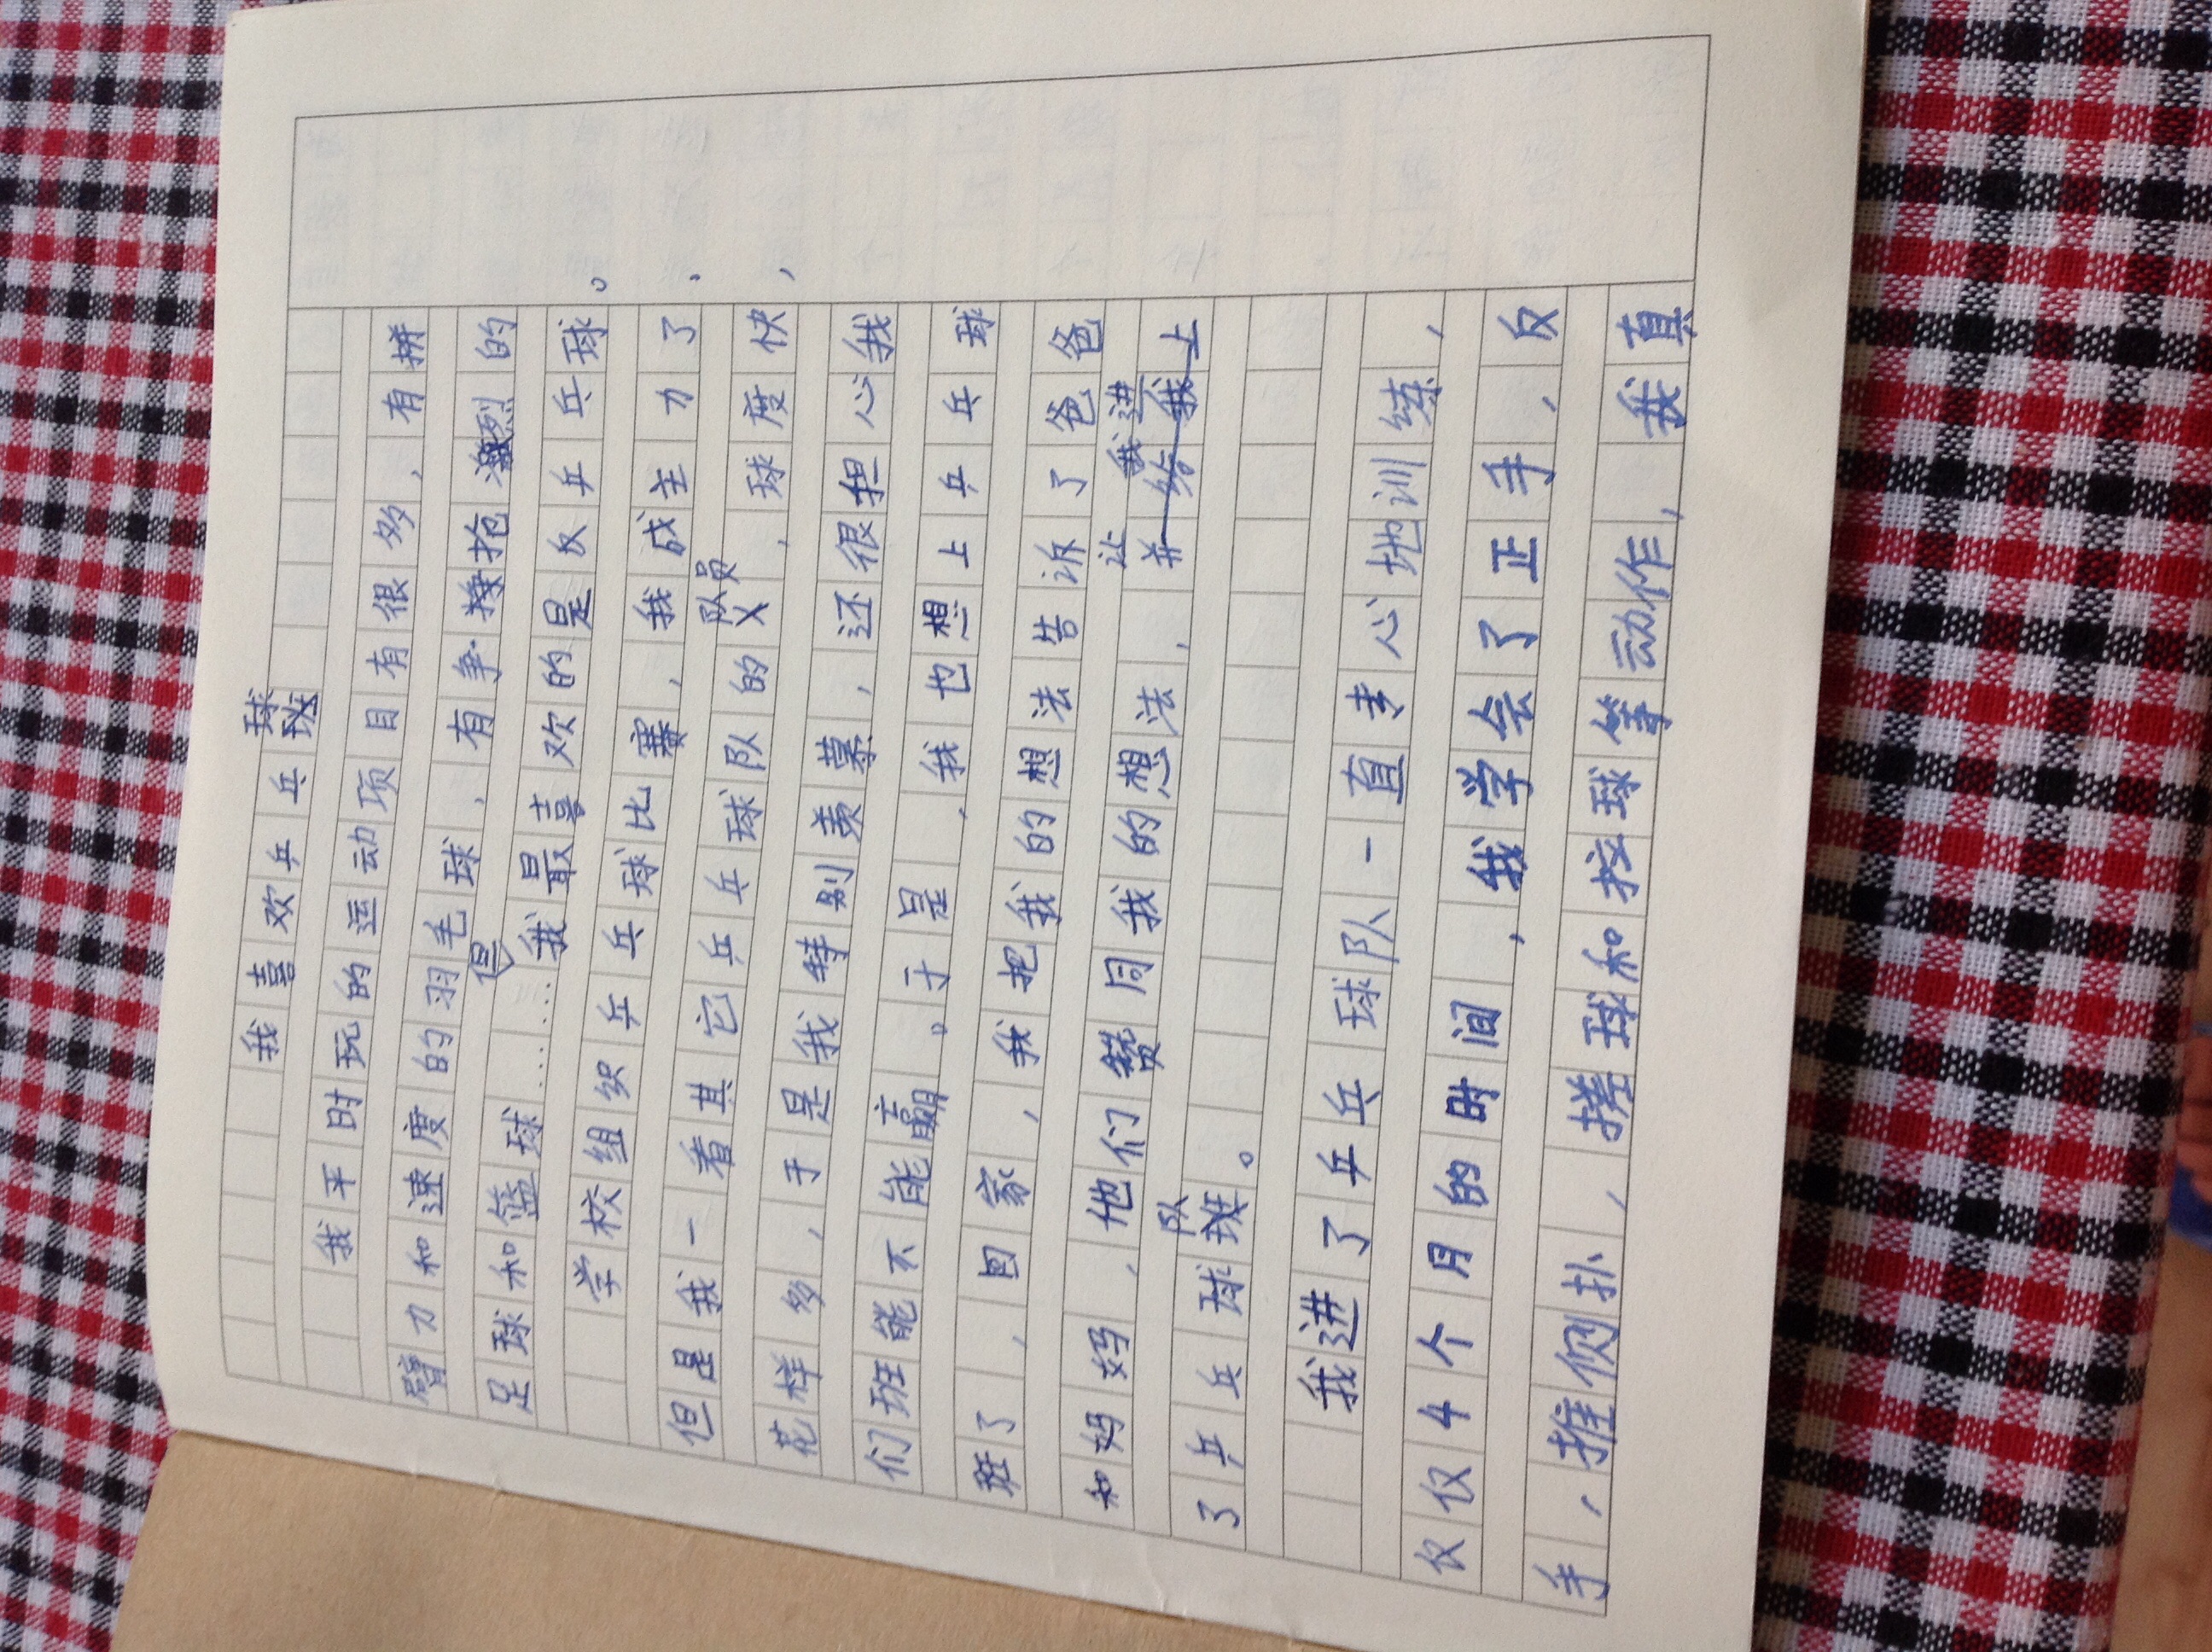 我喜欢乒乓球
我平时玩的运动项目有很多，有拼
臂力和速度的羽毛球，有争抢激烈的
足球和篮球……但我最喜欢的是乒乓球。
学校组织乒乓球比赛，我成主力了，
但是我一看其它乒乓球队的队员，球度快，
花样多，于是我特别羡慕，还很担心我
们班能不能赢。于是，我也想上乒乓球
班了，回家，我把我的想法告诉了爸爸
和妈妈，他们赞同我的想法，让我进
了乒乓球队。
我进了乒乓球队一直专心地训练，
仅仅4个月的时间，我学会了正手，反
手，推侧扑，搓球和控球等动作，我真